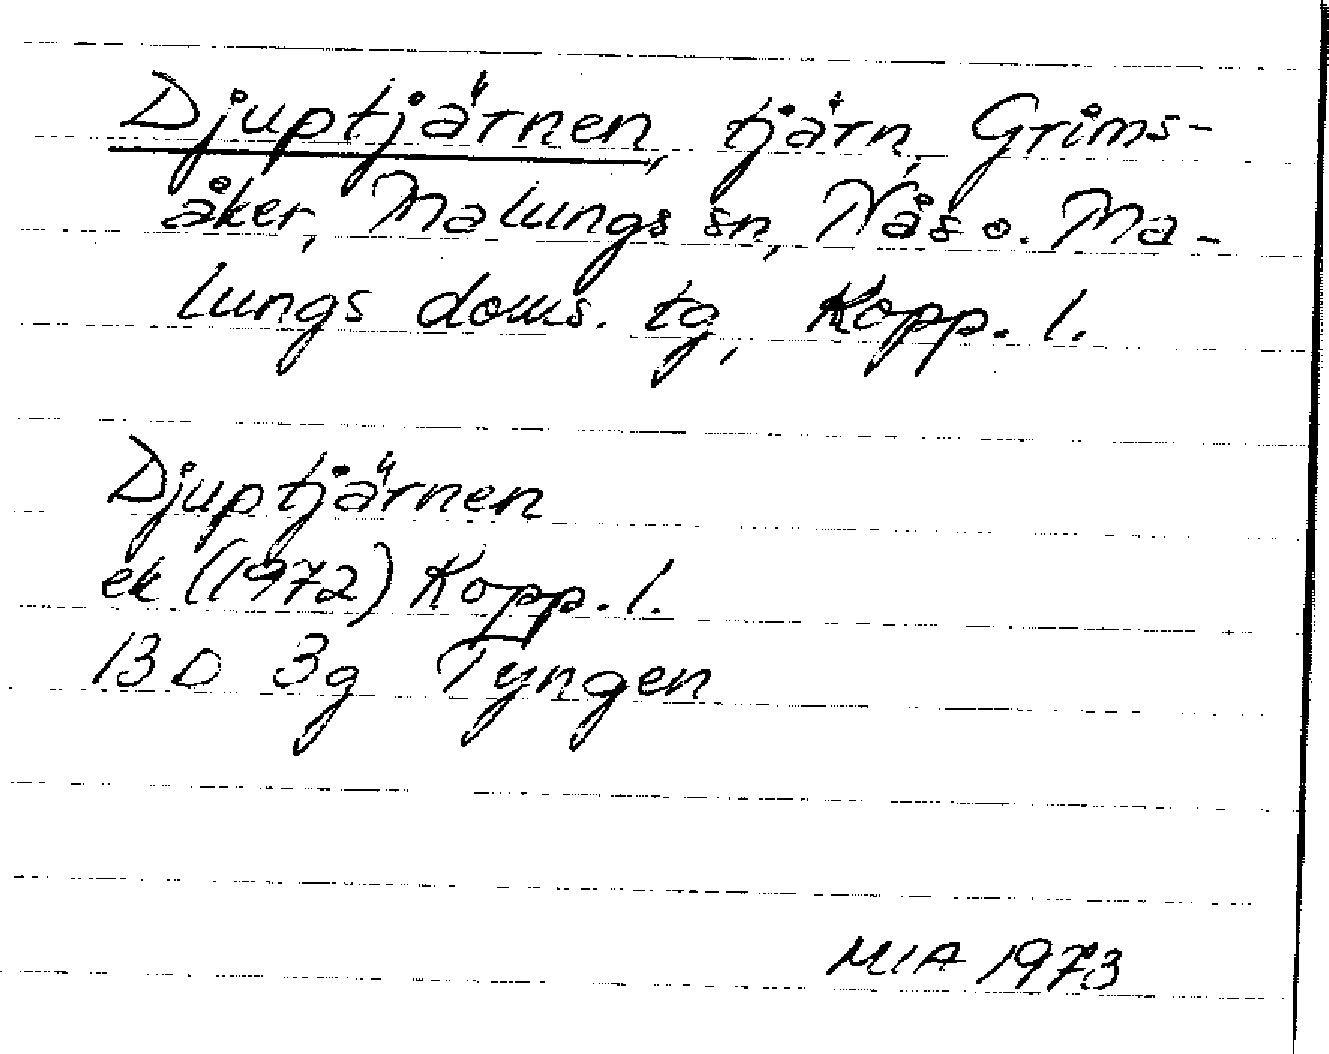 Djuptjärnen, tjärn, Grims-
åker, Malungs sn, Nås o. Ma-
lungs doms. tg, Kopp. l.
Djuptjärnen
ek (1972) Kopp. l.
13 D 3g Tyngen
MIA 1973